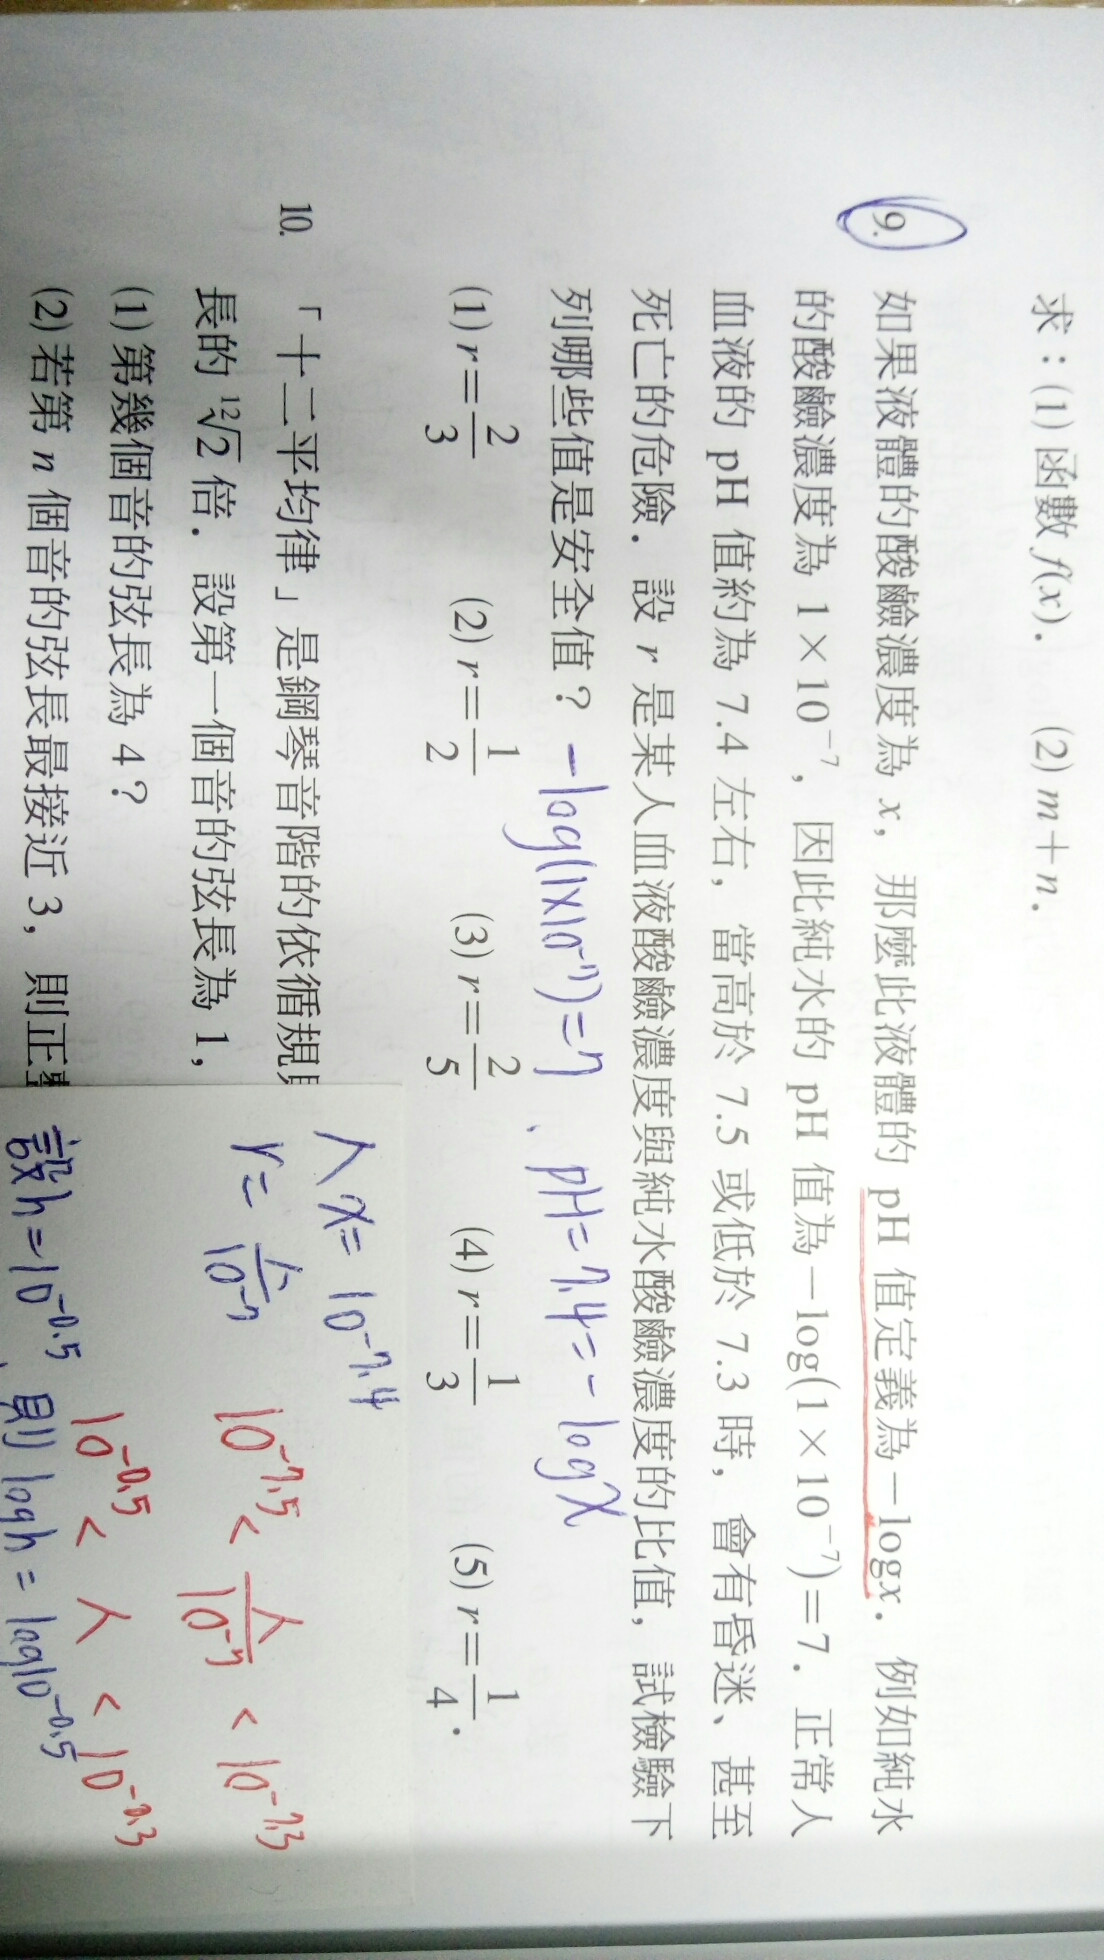 求：(1) 函數 f(x)． (2) m＋n．
9. 如果液體的酸鹼濃度為 x，那麼此液體的 pH 值定義為－logx．例如純水
的酸鹼濃度為 1×10⁻⁷，因此純水的 pH 值為－log(1×10⁻⁷)＝7．正常人
血液的 pH 值約為 7.4 左右，當高於 7.5 或低於 7.3 時，會有昏迷、甚至
死亡的危險．設 r 是某人血液酸鹼濃度與純水酸鹼濃度的比值，試檢驗下
列哪些值是安全值？
-log(1x10⁻⁷)=7 、pH=7.4=-logx
(1) r＝2/3 (2) r＝1/2 (3) r＝2/5 (4) r＝1/3 (5) r＝1/4．
10. 「十二平均律」是鋼琴音階的依循規
長的 ¹²√2 倍．設第一個音的弦長為 1，
(1) 第幾個音的弦長為 4？
(2) 若第 n 個音的弦長最接近 3，則正
人 x= 10⁻⁷·⁴
r= 人/10⁻⁷
10⁻⁷·⁵ < 人/10⁻⁷ < 10⁻⁷·³
10⁻⁰·⁵ < 人 < 10⁻⁰·³
設h=10⁻⁰·⁵、則 logh = log10⁻⁰·⁵